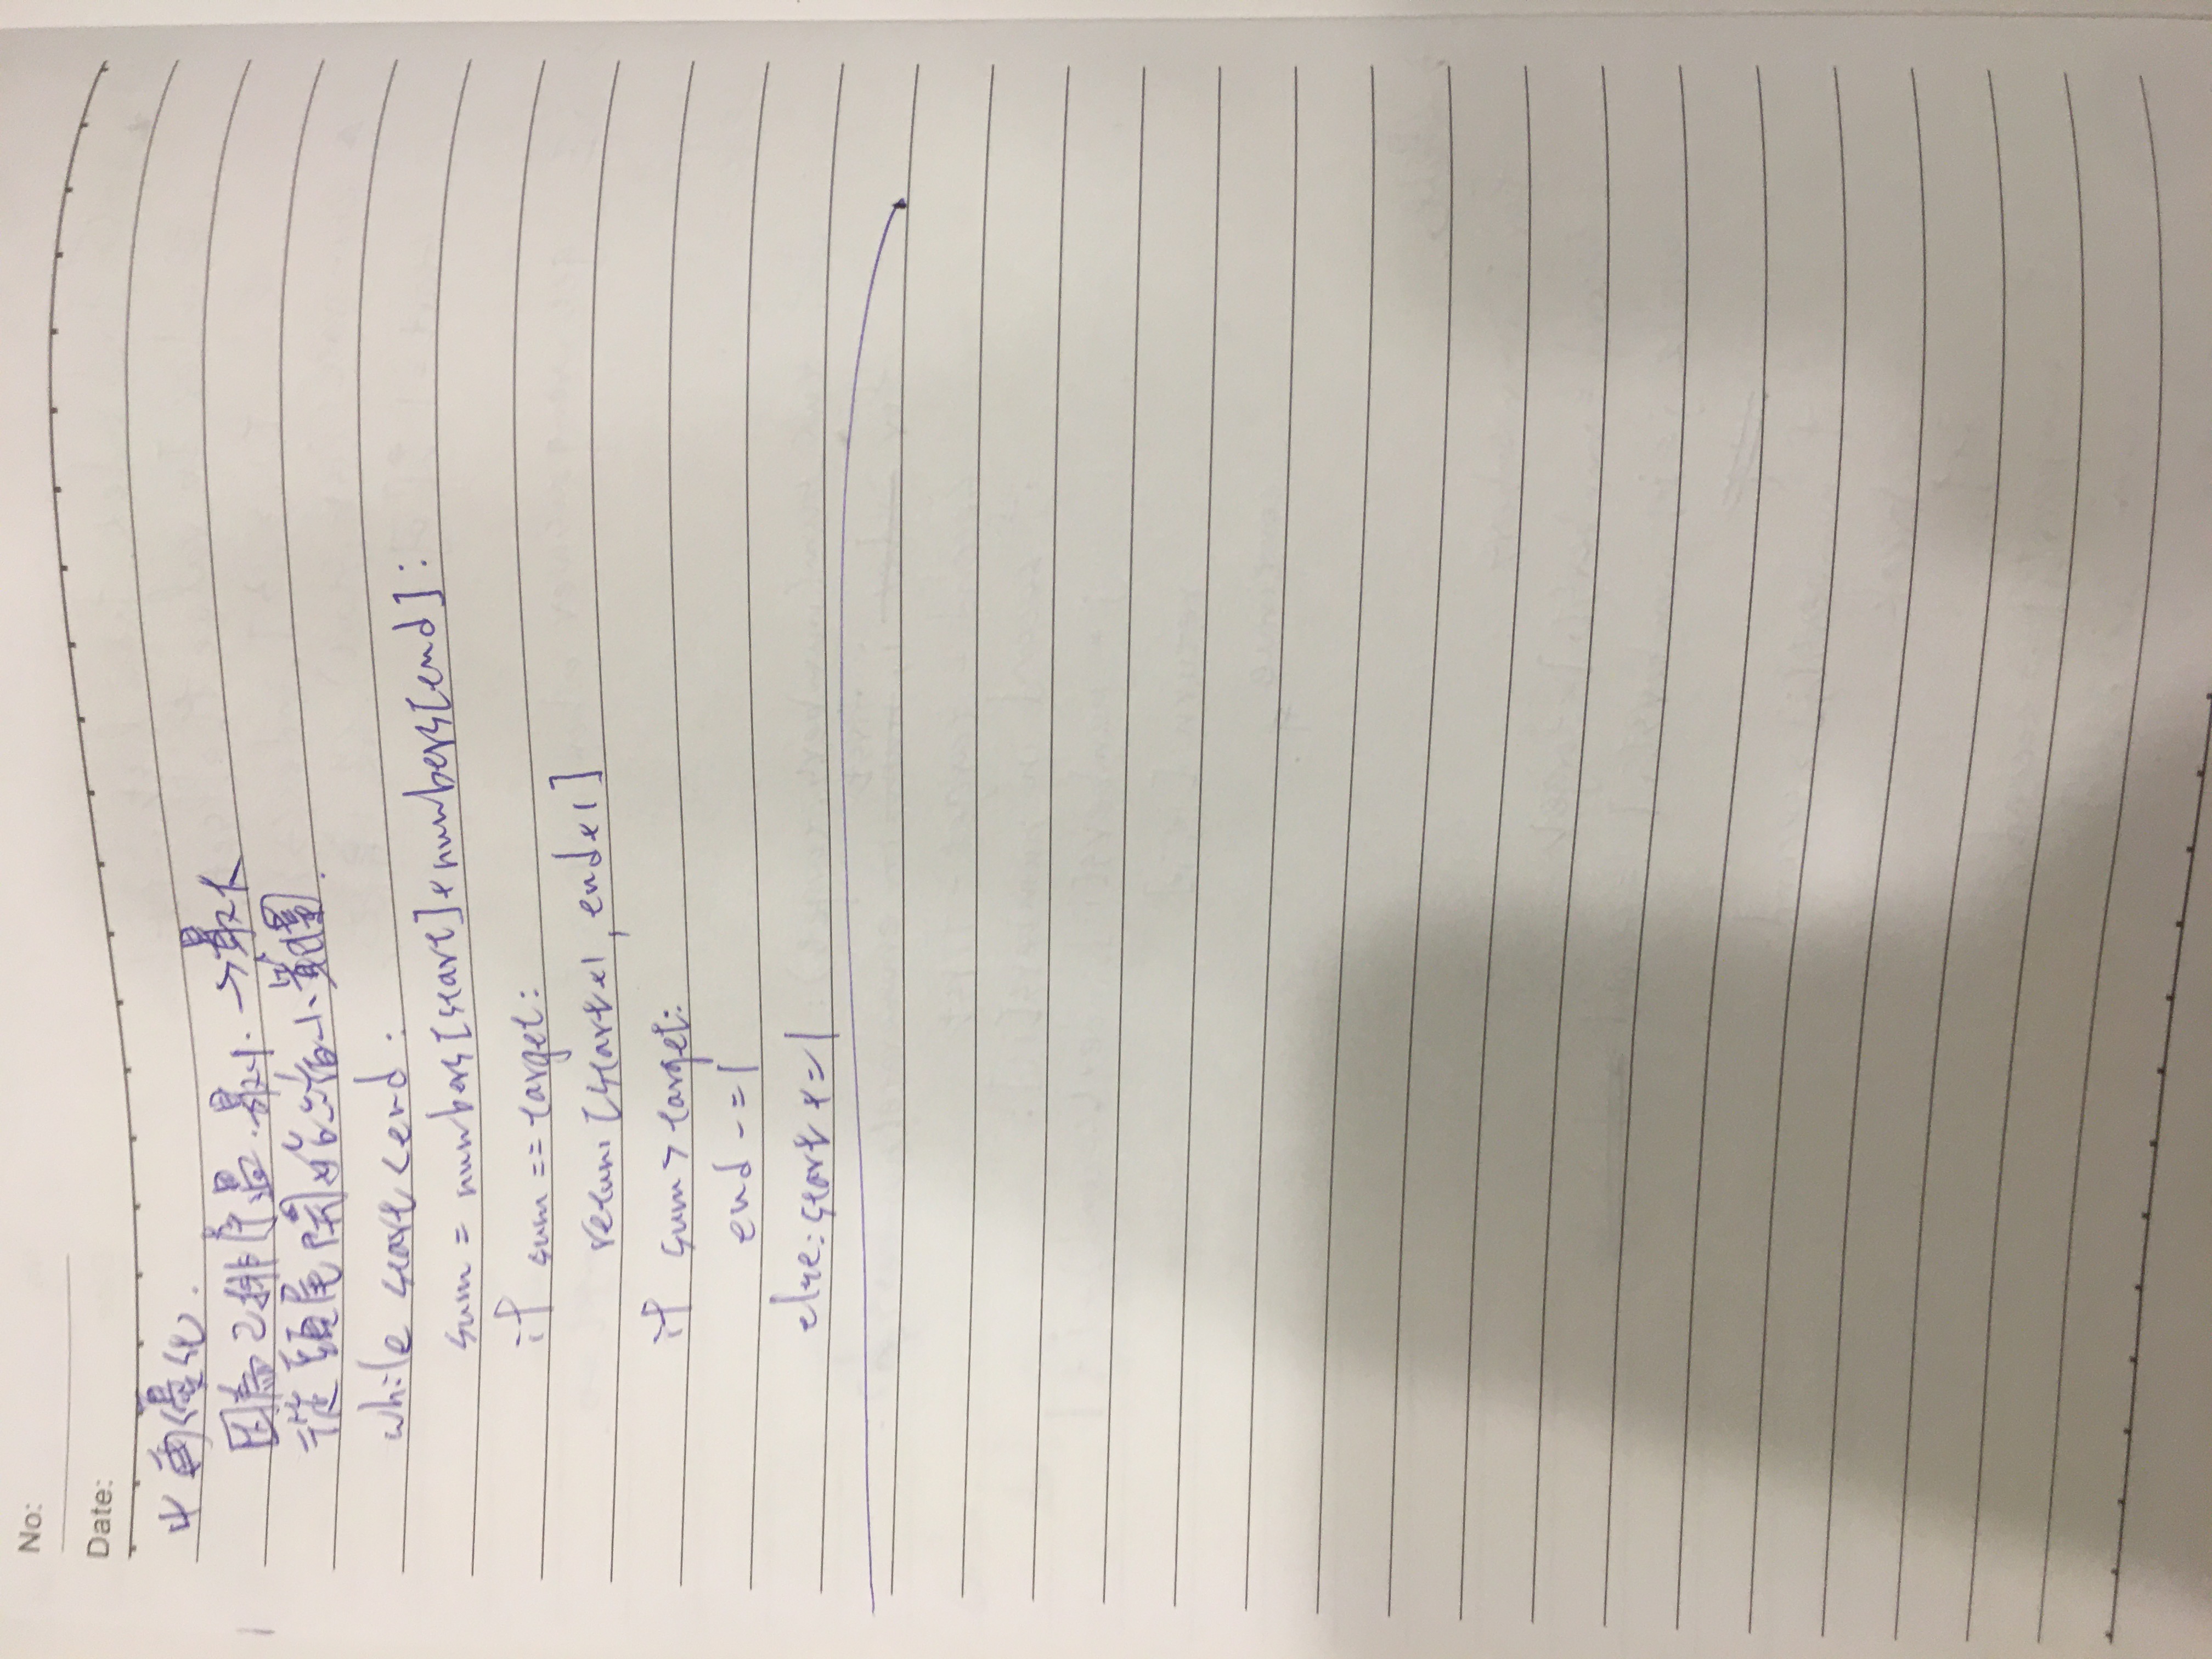 No:
Date:
4 再優化.
因為已排序過.最小→最大
從頭尾開始縮小範圍.
while start<end:
sum = numbers[start]+numbers[end]:
if sum == target:
return [start+1, end+1]
if sum > target:
end -= 1
else: start += 1